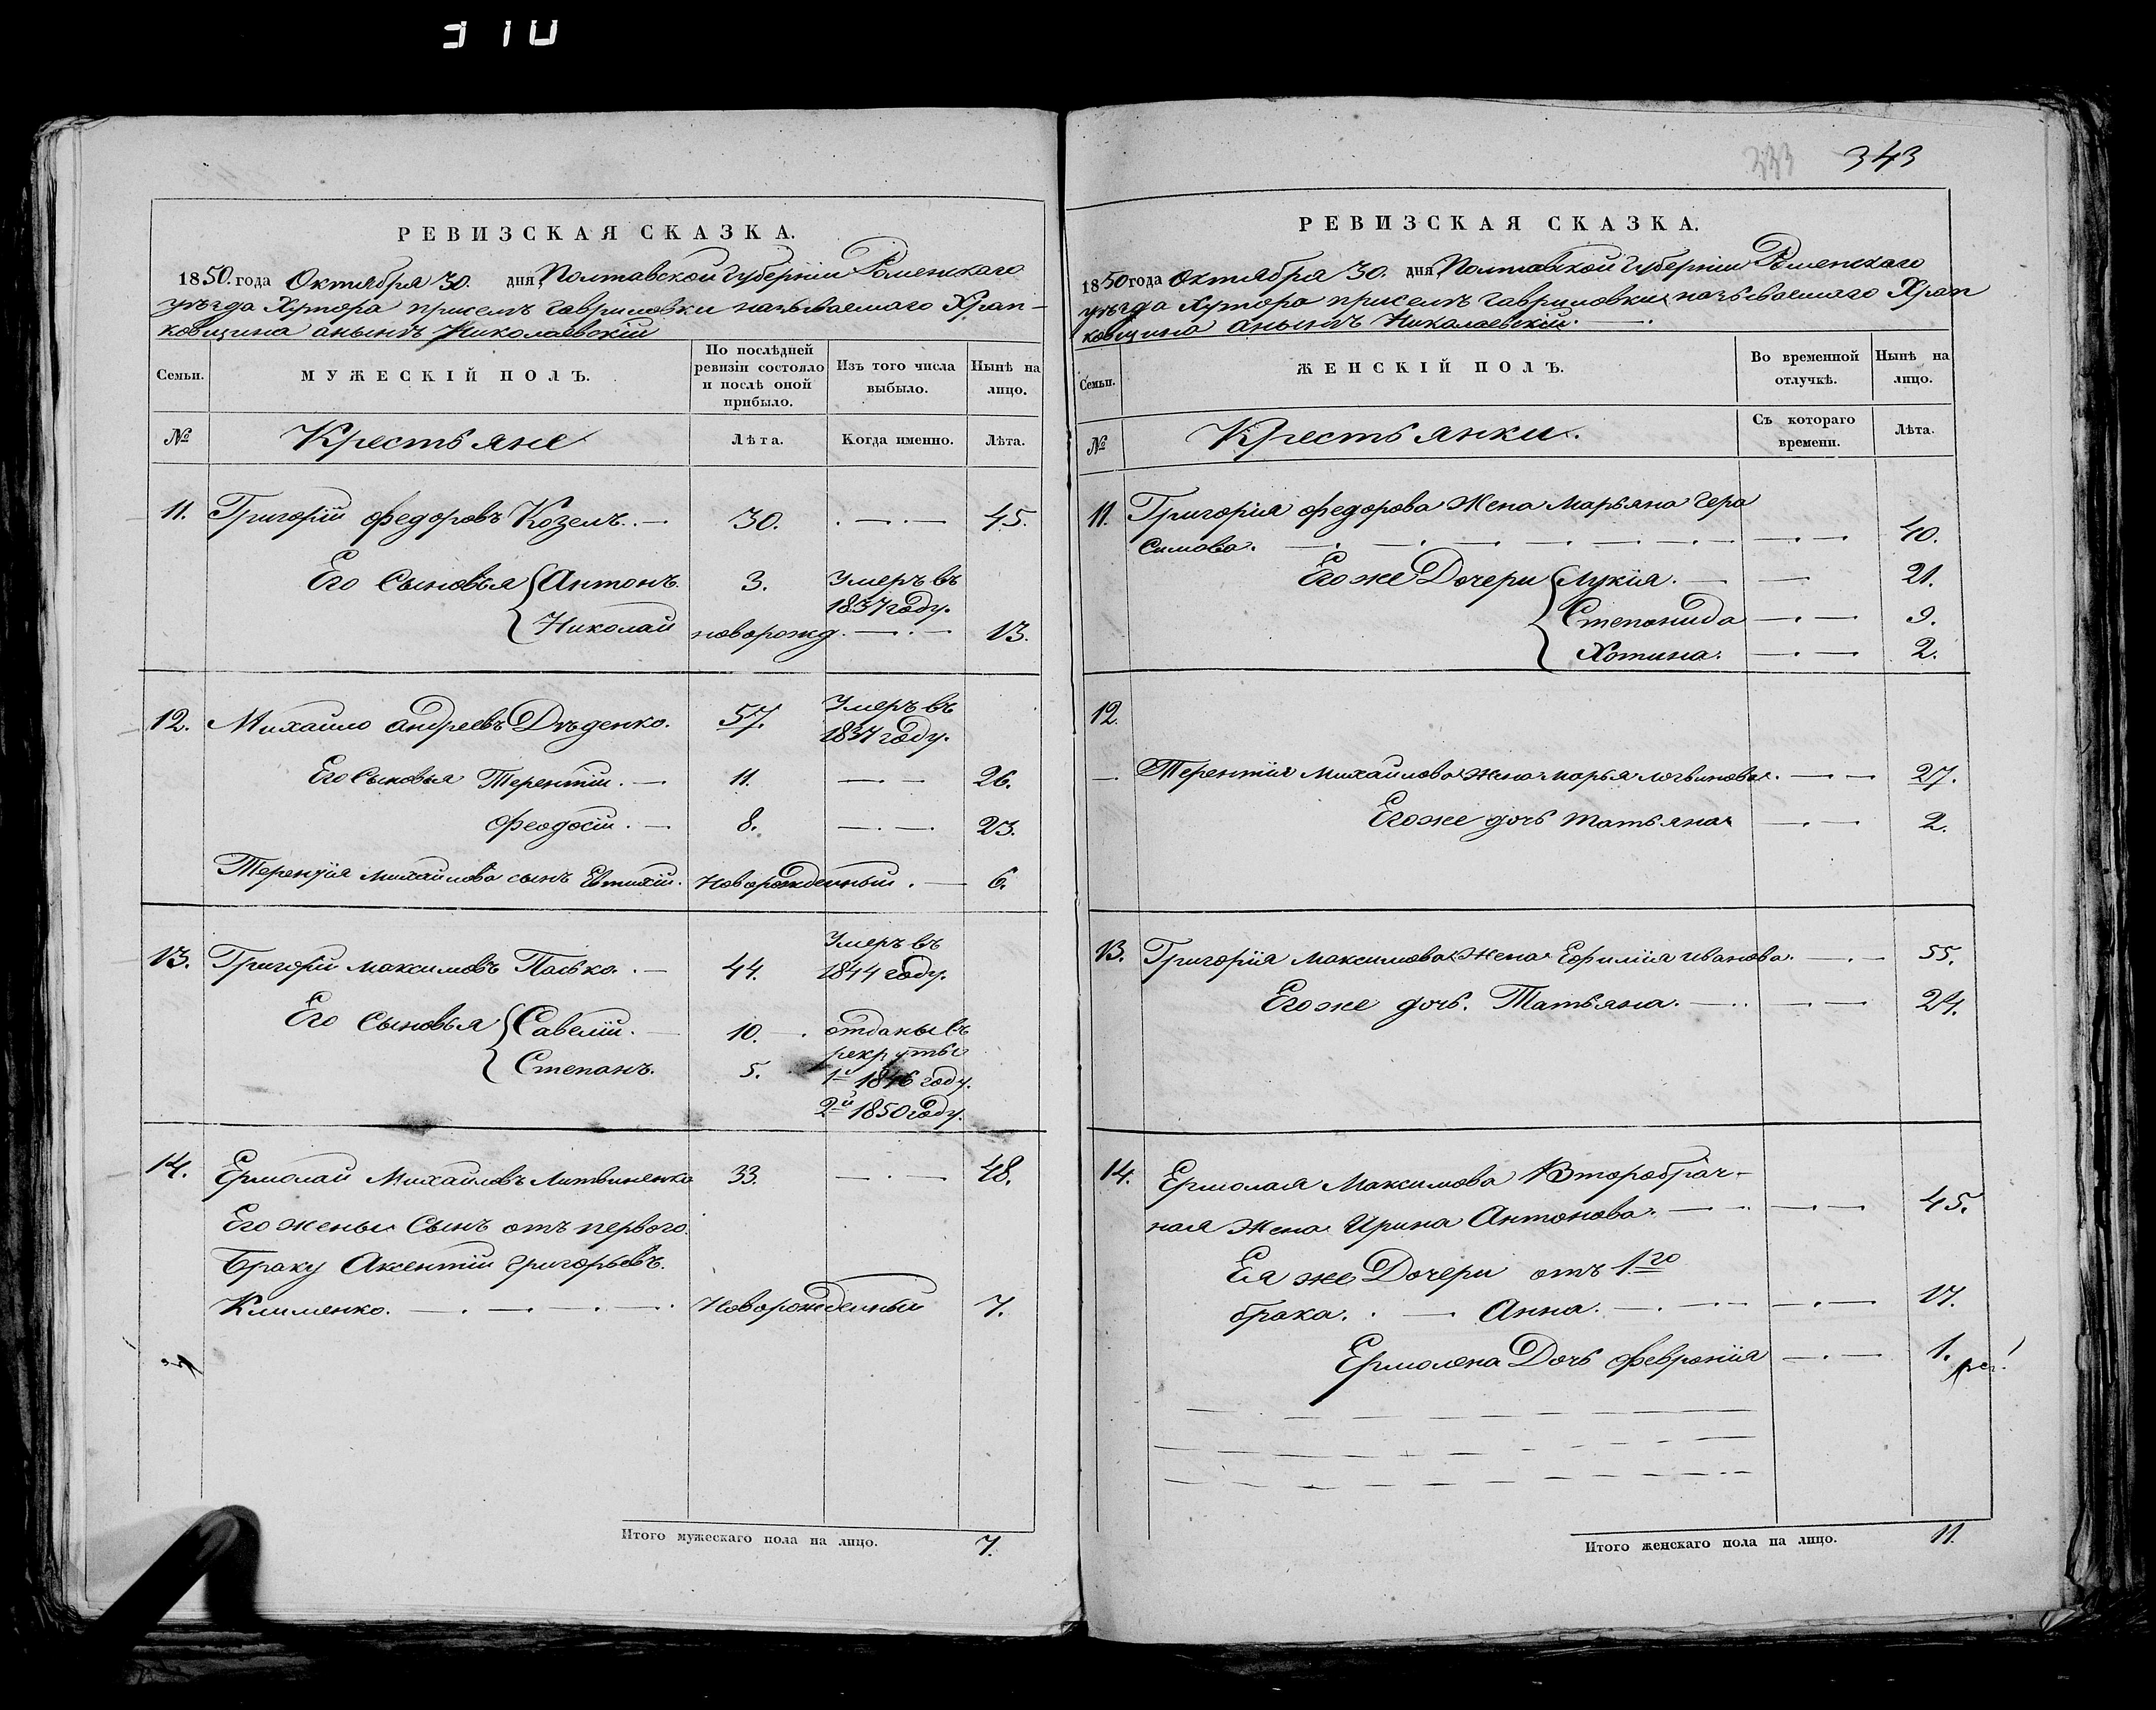 310
РЕВИЗСКАЯ СКАЗКА.
1850. года Октября 30. дня, Полтавской Губерніи Роменскаго
уѣзда Хутора при селѣ Гавриловки называемаго Храп-
ковщина анынѣ Николаевскій
Семьи.
МУЖЕСКІЙ ПОЛЪ.
По послѣдней ревизіи состояло и послѣ оной прибыло.
Изъ того числа выбыло.
Нынѣ на лицо.
№
Крестьяне
Лѣта.
Когда именно.
Лѣта.
11. Григорій Федоровъ Козелъ. — 30. . — . — 45.
Его Сыновья { Антонъ. 3. Умеръ въ 1837 году.
Николай новорожд. — . — 13.
12. Михайло Андреевъ Дѣденко. 57. Умеръ въ 1837 году.
Его Сыновья Терентій. — 11. — . — 26.
Феодосій. — 8. — . — 23.
Терентія Михайлова сынъ Евтихій. Новорожденный. — 6.
13. Григорій Максимовъ Пасько. — 44. Умеръ въ 1844 году.
Его Сыновья { Савелій. — 10. — . отданы въ
рекруты
Степанъ. 5. 1й 1846 году.
2й 1850 году.
14. Ермолай Михайловъ Литвиненко 33. — . — 48.
Его жены Сынъ отъ перваго.
Браку Аксентій Григорьевъ.
Клименко. — . — . — . Новорожденный 7.
Итого мужескаго пола на лицо. 7.
333 343
РЕВИЗСКАЯ СКАЗКА.
1850 года Октября 30. дня, Полтавской Губерніи Роменскаго
уѣзда Хутора при селѣ Гавриловки называемаго Храп
ковщина анынѣ Николаевскій. —
Семьи.
ЖЕНСКІЙ ПОЛЪ.
Во временной отлучкѣ.
Нынѣ на лицо.
№
Крестьянки.
Съ котораго времени.
Лѣта.
11. Григорія Федорова Жена Марьяна Гера
симова. — . — . — 40.
Его же Дочери { Лукія. — — 21.
Степанида — . — 9.
Хотина. — . — 2.
12.
— Терентія Михайлова Жена Марья Логвинова. — . — 27.
Его же дочь Татьяна — . — 2.
13. Григорія Максимова Жена Ефимія Иванова. — . — 55.
Его же дочь. Татьяна. — . . — . — 24.
14. Ермолая Максимова Второбрач-
ная Жена Ирина Антонова. — . . — . — 45.
Ея же Дочери отъ 1го
брака. . — Анна. — . — . — . — 17.
Ермолена Дочь Февронія — . — 1.
Итого женскаго пола на лицо. 11.